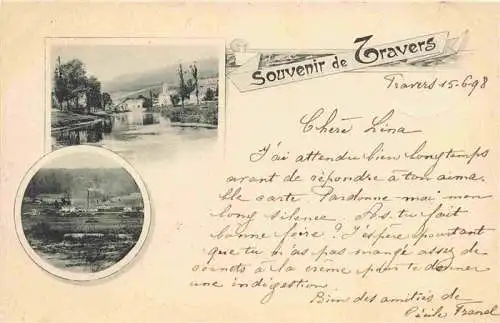 Souvenir de Travers
Travers 15-6-98
Chère Lina
J'ai attendu bien longtemps
avant de répondre à ton aima-
ble carte. Pardonne moi mon
long silence. As-tu fait
bonne foire? J'espère pourtant
que tu n'as pas mangé assez de
cornets à la crème pour te donner
une indigestion.
Bien des amitiés de
Cécile